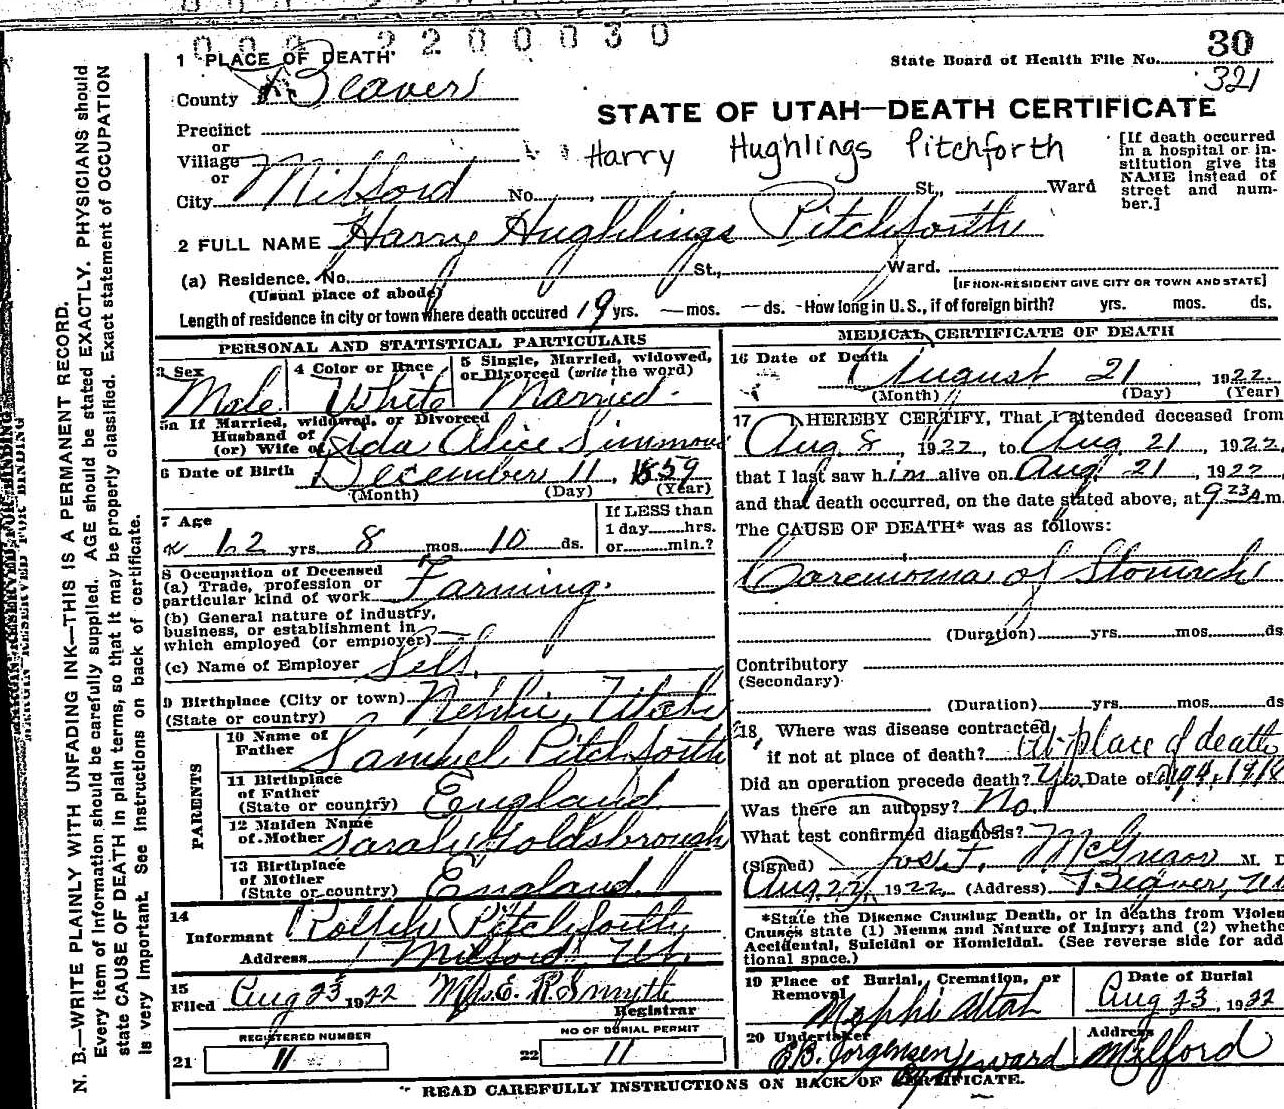 009 2200030
1 PLACE OF DEATH
State Board of Health File No. 30
321
County Beaver
STATE OF UTAH—DEATH CERTIFICATE
Precinct
or
Village
or
City Milford No. St., Ward
Harry Hughlings Pitchforth
[If death occurred in a hospital or in-stitution give its NAME instead of street and num-ber.]
2 FULL NAME Harry Hughlings Pitchforth
(a) Residence. No. St., Ward.
(Usual place of abode)
[IF NON-RESIDENT GIVE CITY OR TOWN AND STATE]
Length of residence in city or town where death occured 19 yrs. — mos. — ds. - How long in U.S., if of foreign birth? yrs. mos. ds.
PERSONAL AND STATISTICAL PARTICULARS
3 Sex
Male
4 Color or Race
White
5 Single, Married, widowed, or Divorced (write the word)
Married
5a If Married, widowed, or Divorced
Husband of
(or) Wife of Ida Alice Simmons
6 Date of Birth December 11, 1859
(Month) (Day) (Year)
7 Age
62 yrs. 8 mos. 10 ds.
If LESS than
1 day hrs.
or min.?
8 Occupation of Deceased
(a) Trade, profession or
particular kind of work Farming.
(b) General nature of industry,
business, or establishment in
which employed (or employer)
(c) Name of Employer Self.
9 Birthplace (City or town) Nephi, Utah
(State or country)
PARENTS
10 Name of
Father Samuel Pitchforth
11 Birthplace
of Father
(State or country) England
12 Maiden Name
of Mother Sarah Goldsbrough
13 Birthplace
of Mother
(State or country) England
14
Informant Pitchforth
Address Milford Ut.
15
Filed Aug 23 1922 Mrs. E. R. Smyth
Registrar
REGISTERED NUMBER
21 11
NO OF BURIAL PERMIT
22 11
MEDICAL CERTIFICATE OF DEATH
16 Date of Death August 21, 1922.
(Month) (Day) (Year)
17 I HEREBY CERTIFY, That I attended deceased from
Aug 8, 1922, to Aug. 21, 1922
that I last saw him alive on Aug. 21, 1922
and that death occurred, on the date stated above, at 9 23 A.m.
The CAUSE OF DEATH* was as follows:
Carcinoma of Stomach
(Duration) yrs. mos. ds
Contributory
(Secondary)
(Duration) yrs. mos. ds
18 Where was disease contracted
if not at place of death? At place of death
Did an operation precede death? Yes Date of 1918
Was there an autopsy? No.
What test confirmed diagnosis?
(Signed) M. D
Aug. 22, 1922. (Address) Beaver, Ut
*State the Disease Causing Death, or in deaths from Violen
Causes state (1) Means and Nature of Injury; and (2) whethe
Accidental, Suicidal or Homicidal. (See reverse side for add
tional space.)
19 Place of Burial, Cremation, or
Removal
Nephi Utah
Date of Burial
Aug 23, 1922
20 Undertaker
E.B. Jorgensen
Address
Milford
READ CAREFULLY INSTRUCTIONS ON BACK OF CERTIFICATE.
MARGIN RESERVED FOR BINDING
N. B.—WRITE PLAINLY WITH UNFADING INK—THIS IS A PERMANENT RECORD.
Every item of information should be carefully supplied. AGE should be stated EXACTLY. PHYSICIANS should
state CAUSE OF DEATH in plain terms, so that it may be properly classified. Exact statement of OCCUPATION
is very important. See instructions on back of certificate.